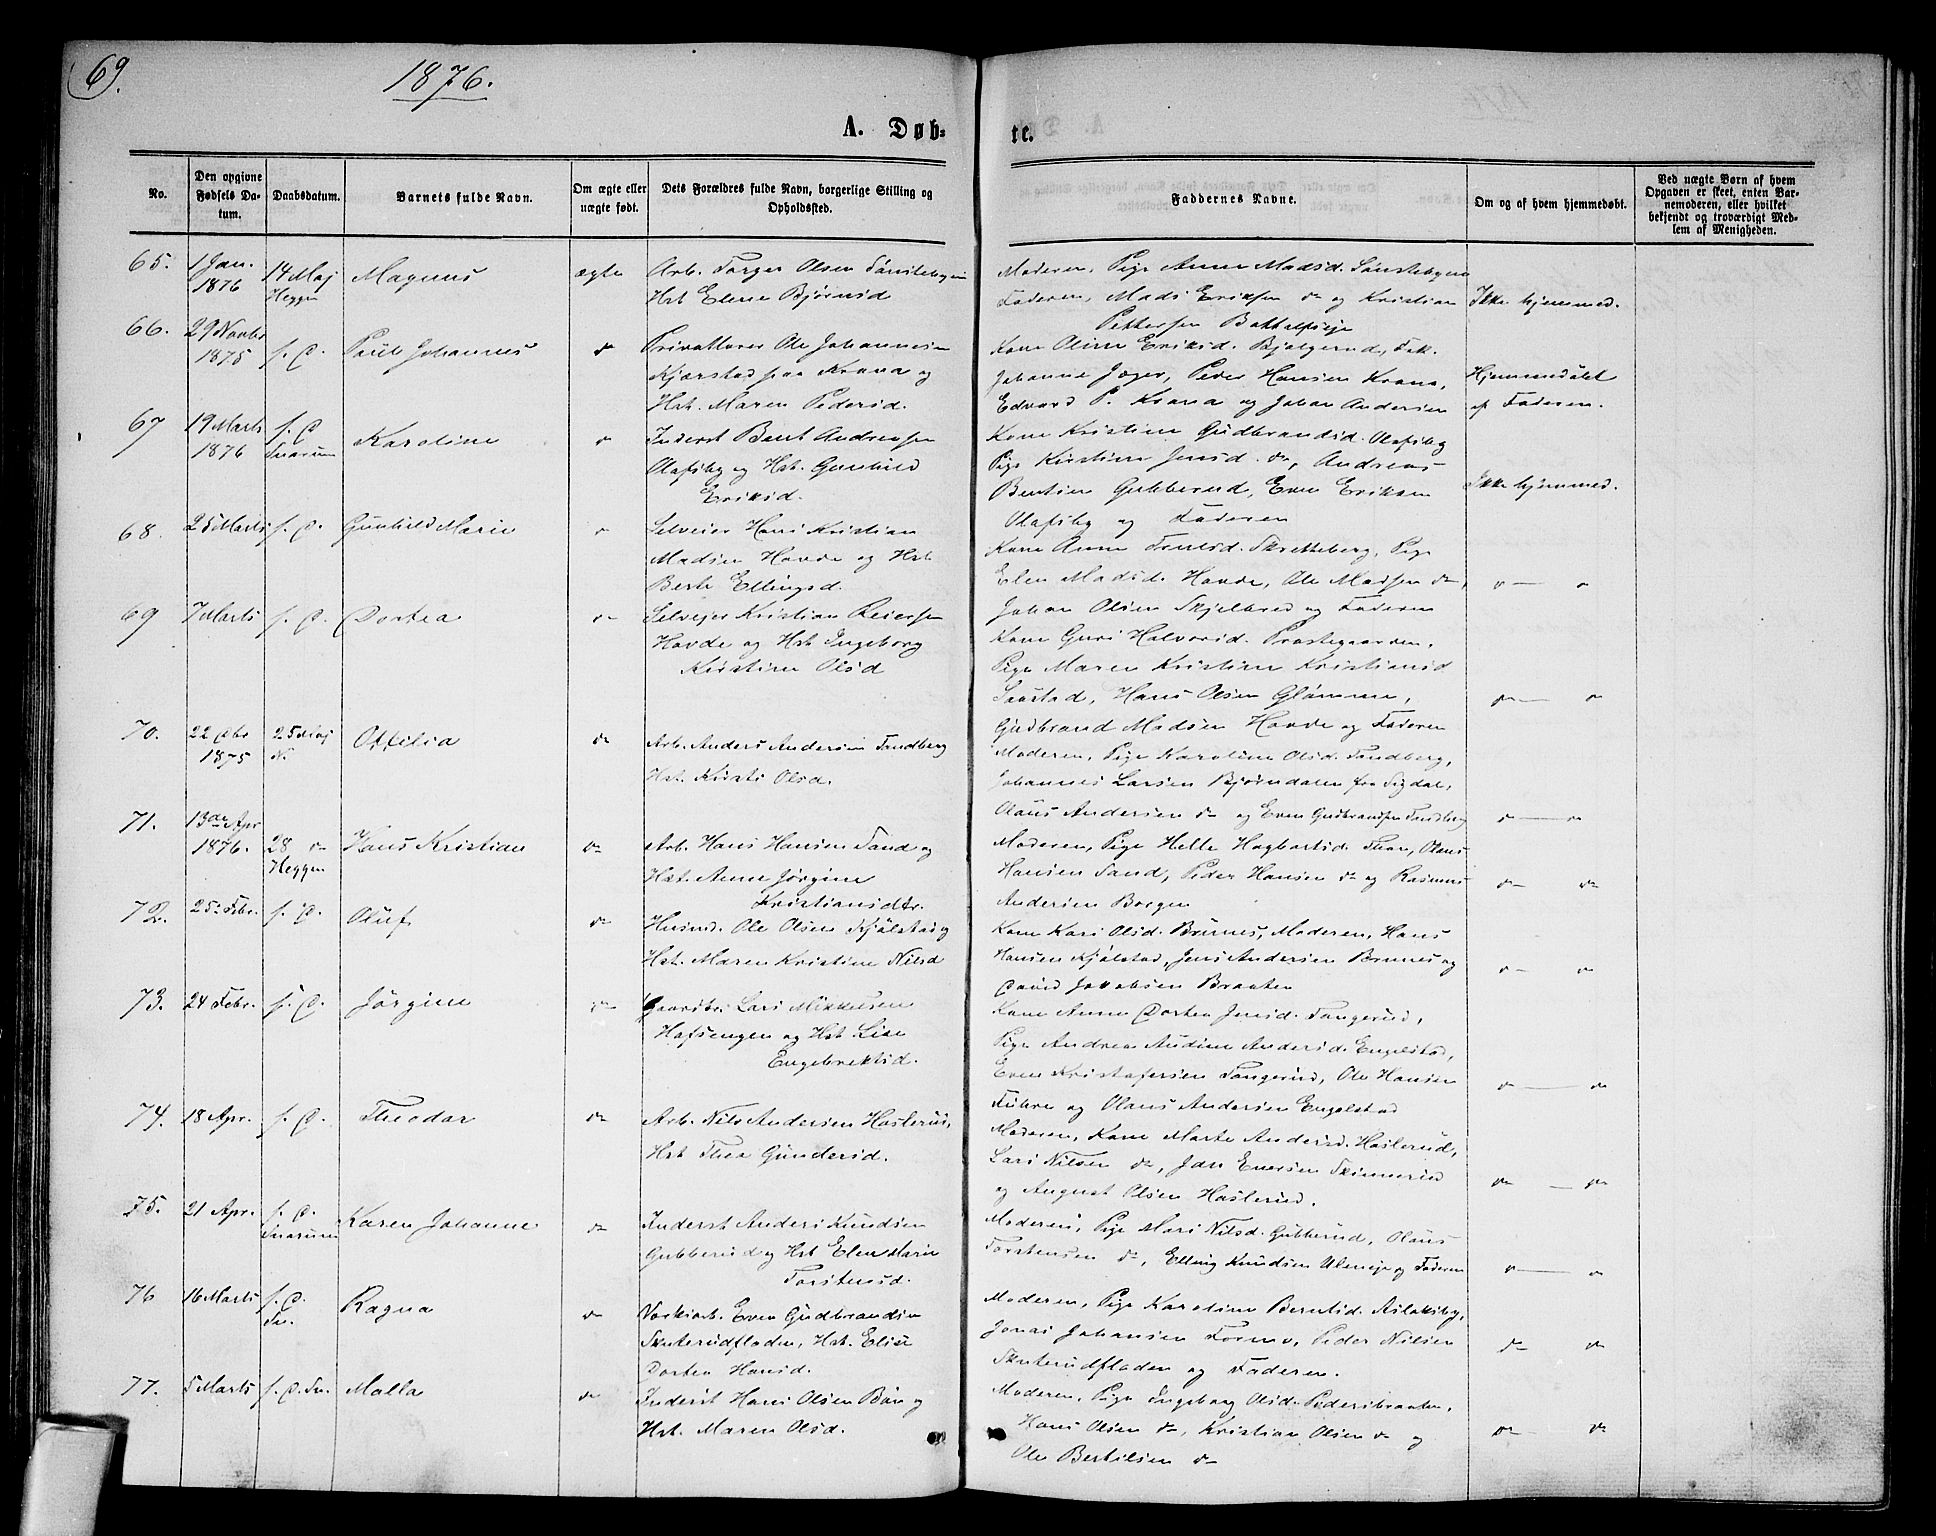 69.
1876.
A. Døb-
te.
No.
Den opgivne Fødsels Da-tum.
Daabsdatum.
Barnets fulde Navn.
Om ægte eller uægte født.
Dets Forældres fulde Navn, borgerlige Stilling og Opholdssted.
Faddernes Navne.
Om og af hvem hjemmedøbt.
Ved uægte Børn af hvem Opgaven er skeet, enten Bar-nemoderen, eller hvilket bekjendt og troværdigt Med-lem af Menigheden.
65.
1 Jan. 1876
14 Maj Heggen
Magnus
ægte
Arb. Torger Olsen
Hst. Elene Bjørnsd
Moderen, Pige Anne Madsd. Sønstebyeie
Faderen, Mads Eriksen do og Kristian
Pettersen
Ikke hjemmed.
66.
29 Novbr 1875
s. D.
Paul Johannes
do
Privatlærer Ole Johannesen
Kjærstad paa Krana og
Hst. Maren Pedersd.
Kone Oline Eriksd. Bjølgerud, Frk.
Johanne Jæger, Peder Hansen Krana,
Edvard P. Krana og Johan Andersen
Hjemmedøbt
af Faderen.
67
19 Marts 1876
s. D Snarum
Karoline
do
Inderst Bent Andreasen
Olafsby og Hst. Gunhild
Eriksd.
Kone Kristine Gudbrandsd. Olafsby
Pige Kirstine Jensd. do, Andreas
Bentsen Gubberud, Even Eriksen
Olafsby og Faderen
Ikke hjemmed.
68.
25 Marts
s. D.
Gunhild Marie
do
Selveier Hans Kristian
Madsen Hovde og Hst.
Berte Ellingsd.
Kone Anne Skretteberg, Pige
Elen Madsd. Hovde, Ole Madsen do,
Johan Olsen Skjelbred og Faderen
do — do
69
7 Marts
s. D.
Dortea
do
Selvejer Kristian Reiersen
Hovde og Hst Ingeborg
Kirstine Olsd
Kone Guri Halvorsd. Præstegaarden,
Pige Maren Kristine Kristiansd
Saastad, Hans Olsen Glømme,
Gudbrand Madsen Hovde og Faderen
do — do
70.
22 Dbr 1875
25 Maj N.
Ottilia
do
Arb. Anders Andersen Sandberg
Hst. Kirsti Olsd.
Moderen, Pige Karoline Olsd. Sandberg,
Johannes Larsen Bjørndalen fra Sigdal,
Olaus Andersen do og Even Gudbrandsen Sandberg
do — do
71.
13de Apr 1876.
28 do Heggen
Hans Kristian
do
Arb. Hans Hansen Sand og
Hst. Anne Jørgine
Kristiansdtr.
Moderen, Pige Helle Hagbartsd. Thon, Olaus
Hansen Sand, Peder Hansen do og Rasmus
Andersen Borgen
do — do
72.
25 Febr.
s. D.
Oluf
do
Husmd. Ole Olsen Kjølstad og
Hst. Maren Kristine Nilsd
Kone Kari Olsd. Brunes, Moderen, Hans
Hansen Kjølstad, Jens Andersen Brunes og
David Jakobsen Braaten
do — do
73.
24 Febr.
s. D.
Jørgine
do
Gaardbr. Lars Mikkelsen
Hafsengen og Hst Lise
Engebrektsd.
Kone Anne Dortea Jensd. Tangerud,
Pige Andrea Audine Andersd. Engelstad,
Even Kristofersen Tangerud, Ole Hansen
Fubre og Olaus Andersen Engelstad
do — do
74.
18 Apr.
s. D.
Theodor
do
Arb. Nils Andersen Haslerud,
Hst Thea Gundersd.
Moderen, Kone Marte Andersd. Haslerud,
Lars Nilsen do, Jan Eversen Skinnerud
og August Olsen Haslerud.
do — do
75.
21 Apr.
s. D. Snarum
Karen Johanne
do
Inderst Anders Knudsen
Gubberud og Hst Elen Marie
Torstensd.
Moderen, Pige Mari Nilsd. Gubberud, Olaus
Torstensen do, Elling Knudsen Uleneje og Faderen
do — do
76
16 Marts
s. D. Sn.
Ragna
do
Værksarb. Even Gudbrandsen
Skuterudfladen, Hst. Elise
Dortea Hansd.
Moderen, Pige Karoline Berntsd. Aslaksby,
Jonas Johansen Formo, Peder Nilsen
Skuterudfladen og Faderen.
do — do
77.
5 Marts
s. D. Sn.
Malla
do
Inderst Hans Olsen Bøn og
Hst. Maren Olsd.
Moderen, Pige Ingeborg Olsd. Pedersbraaten,
Hans Olsen do, Kristian Olsen do og
Ole Bertilsen do
do — do